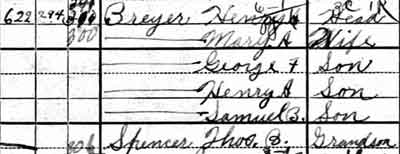 622 294 Breyer Henry Head
300 Mary A Wife
George F Son
Henry A Son
Samuel B. Son
Spencer Thos. B. Grandson